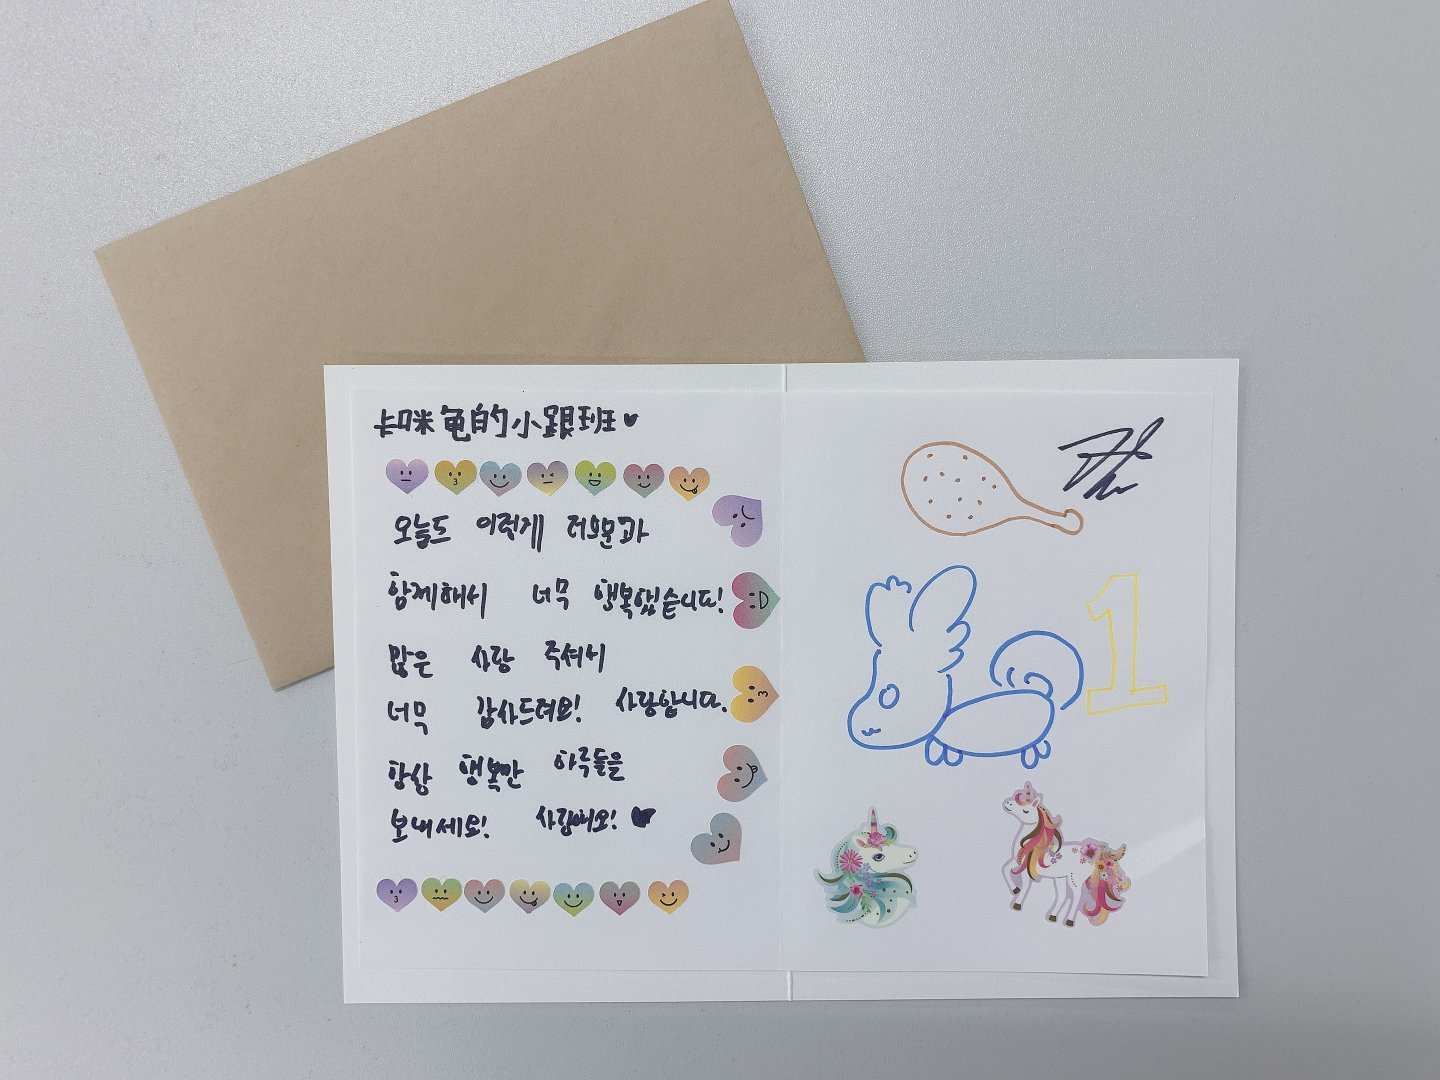 卡咪龟的小跟班♥
오늘도 이렇게 러브문과
함께해서 너무 행복했습니다!
많은 사랑 주셔서
너무 감사드려요! 사랑합니다.
항상 행복만 하루들을
보내세요! 사랑해요! ♥
1